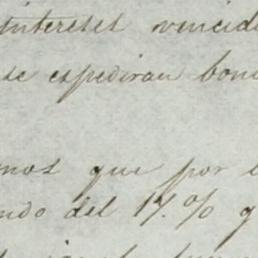 intereses vencid
se espediran bon
mos que por e
ndo del 17.% q